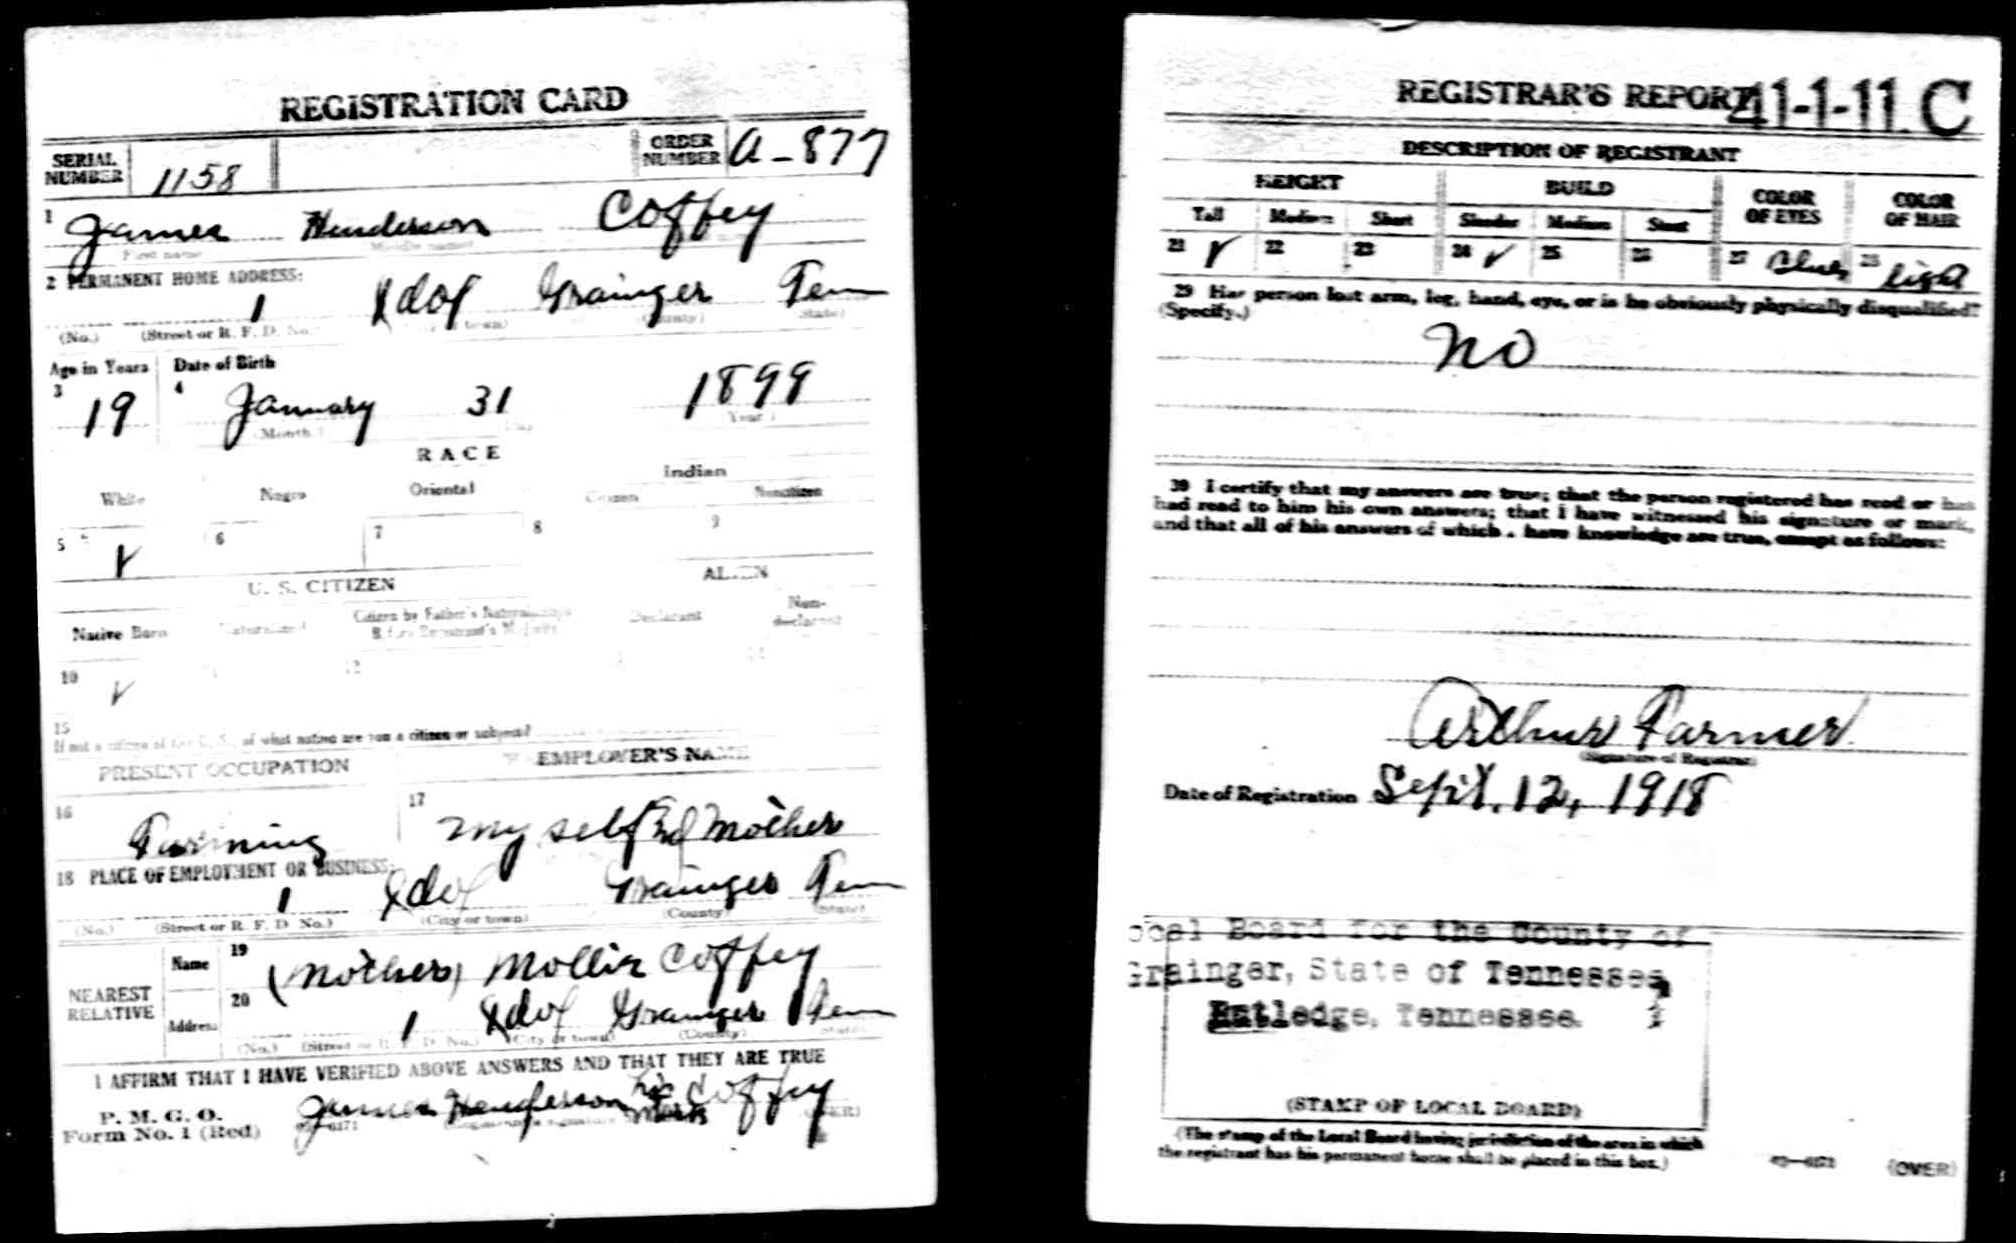 REGISTRATION CARD
SERIAL NUMBER 1158 ORDER NUMBER A-877
1 James Henderson Coffey
First name Middle name
2 PERMANENT HOME ADDRESS:
1 Idol Grainger Tenn
(No.) (Street or R. F. D. No.) town) (County) (State)
Age in Years Date of Birth
3 19 4 January 31 1899
(Month.) Year
RACE
White Negro Oriental Indian
Citizen Noncitizen
5 ✓ 6 7 8 9
U. S. CITIZEN ALIEN
Native Born Naturalized Citizen by Father's Naturalization Before Registrant's Majority Declarant Non-declarant
10 ✓ 12
15 If not a citizen of the U. S., of what nation are you a citizen or subject?
PRESENT OCCUPATION EMPLOYER'S NAME
16 Farming 17 My self & Mother
18 PLACE OF EMPLOYMENT OR BUSINESS:
1 Idol Grainger Tenn
(No.) (Street or R. F. D. No.) (City or town) (County) (State)
NEAREST RELATIVE
Name 19 (Mother) Mollie Coffey
Address 20 1 Idol Grainger Tenn
(No.) (Street or R. F. D. No.) (City or town) (County) (State)
I AFFIRM THAT I HAVE VERIFIED ABOVE ANSWERS AND THAT THEY ARE TRUE
P. M. G. O.
Form No. 1 (Red) James Henderson his mark Coffey
(OVER)
REGISTRAR'S REPORT 41-1-11. C
DESCRIPTION OF REGISTRANT
HEIGHT BUILD COLOR OF EYES COLOR OF HAIR
Tall Medium Short Slender Medium Stout
21 ✓ 22 23 24 ✓ 25 26 27 Blue 28 light
29 Has person lost arm, leg, hand, eye, or is he obviously physically disqualified?
(Specify.)
no
30 I certify that my answers are true; that the person registered has read or has
had read to him his own answers; that I have witnessed his signature or mark,
and that all of his answers of which I have knowledge are true, except as follows:
Arthur Farmer
(Signature of Registrar)
Date of Registration Sept. 12, 1918
ocal Board for the County of
Grainger, State of Tennessee,
Rutledge, Tennessee.
(STAMP OF LOCAL BOARD)
(The stamp of the Local Board having jurisdiction of the area in which
the registrant has his permanent home shall be placed in this box.)
(OVER)